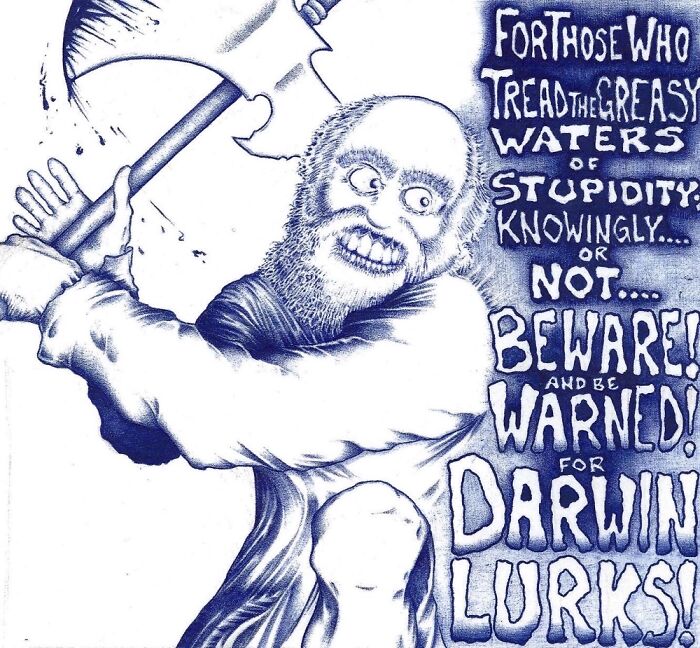 FOR THOSE WHO
TREAD THE GREASY
WATERS
OF
STUPIDITY;
KNOWINGLY....
OR
NOT....
BEWARE!
AND BE
WARNED!
FOR
DARWIN
LURKS!